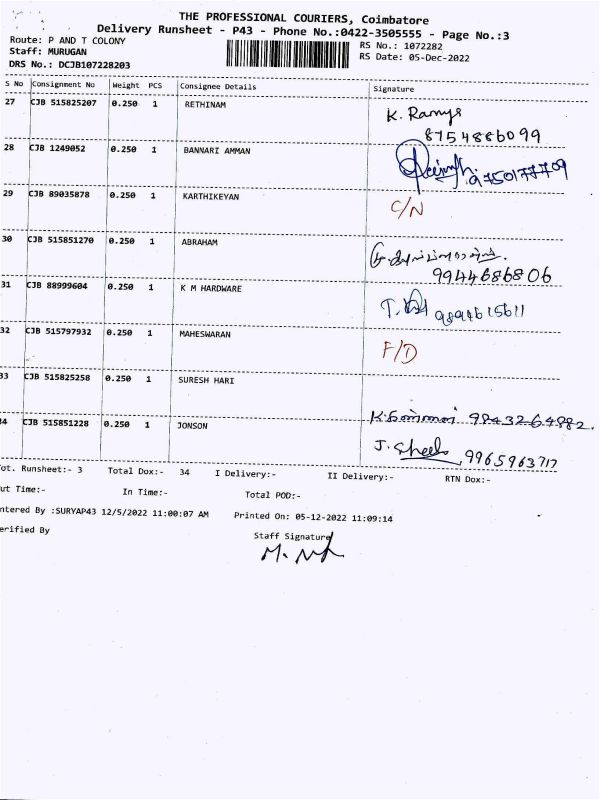 THE PROFESSIONAL COURIERS, Coimbatore
Delivery Runsheet - P43 - Phone No.:0422-3505555 - Page No.:3
Route: P AND T COLONY
RS No.: 1072282
Staff: MURUGAN
RS Date: 05-Dec-2022
DRS No.: DCJB107228203
S No Consignment No Weight PCS Consignee Details Signature
27 CJB 515825207 0.250 1 RETHINAM K. Ramya
8754886099
28 CJB 1249052 0.250 1 BANNARI AMMAN
9750177709
29 CJB 89035878 0.250 1 KARTHIKEYAN C/N
30 CJB 515851270 0.250 1 ABRAHAM
9944686806
31 CJB 88999604 0.250 1 K M HARDWARE T.
32 CJB 515797932 0.250 1 MAHESWARAN F/D
33 CJB 515825258 0.250 1 SURESH HARI
9843264882.
34 CJB 515851228 0.250 1 JONSON J. Sheela 9965963717
ot. Runsheet:- 3 Total Dox:- 34 I Delivery:- II Delivery:- RTN Dox:-
ut Time:- In Time:- Total POD:-
ntered By :SURYAP43 12/5/2022 11:00:07 AM Printed On: 05-12-2022 11:09:14
erified By Staff Signature